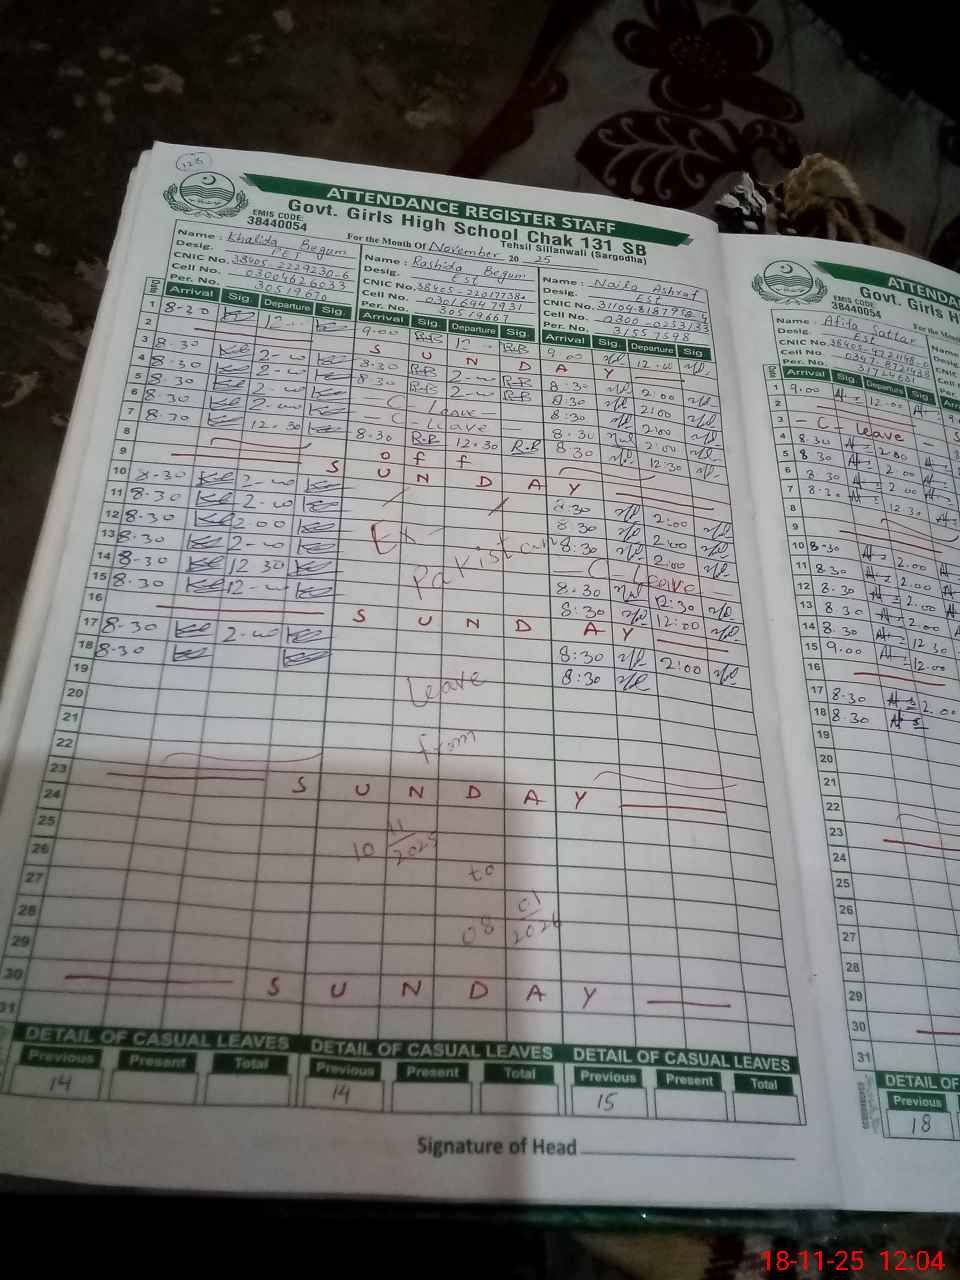 ATTENDANCE REGISTER STAFF
Govt. Girls High School Chak 131 SB
EMIS CODE:
38440054
For the Month Of November 2025 Tehsil Sillanwali (Sargodha)
Name : Khalida Begum
Desig. PET
CNIC No. 38405-2229230-6
Cell No. 03004626033
Per. No. 30519670
Name : Rashida Begum
Desig. EST
Cell No. 03016947931
Per. No. 30519667
Name : Naila Ashraf
Desig. EST
Cell No. 0300-0253133
Per. No. 31557598
Date Arrival Sig. Departure Sig. Arrival Sig. Departure Sig. Arrival Sig. Departure Sig.
1 8-30 12- 9.00 R.B 12- R.B 9 00 12.00
2 S U N D A Y
3 8-30 2-00 8.30 R.B 2-00 R.B 8.30 2:00
4 8-30 2-00 8.30 R.B 2-00 R.B 8:30 2:00
5 8-30 2-00 - C - Leave - 8:30 2:00
6 8-30 2-00 - C - Leave - 8.30 2.00
7 8-30 12.30 8.30 R.R 12.30 R.R 8:30 12:30
8 off
9 S U N D A Y
10 8-30 2-00 8:30 2:00
11 8-30 2-00 Ex- 8:30 2:00
12 8-30 2-00 Pakistan 8:30 2:00
13 8-30 2-00 - C - Leave -
14 8-30 12 30 8.30 12:30
15 8-30 12-00 8:30 12:00
16 S U N D A Y
17 8-30 2-00 8:30 2:00
18 8-30 8:30
19 Leave
20
21
22 from
23 S U N D A Y
24
25 10 11/2025
26
27 to
28 08 01/2026
29
30 S U N D A Y
31
DETAIL OF CASUAL LEAVES DETAIL OF CASUAL LEAVES DETAIL OF CASUAL LEAVES
Previous Present Total Previous Present Total Previous Present Total
14 14 15
Signature of Head
ATTENDA
Govt. Girls H
EMIS CODE:
38440054
Name : Afifa Sattar
Desig. Est
CNIC No.
Cell No.
Per. No.
Date Arrival Sig. Departure Sig.
1 9.00 12.00
2
3 - C - Leave
4 8.30 2.00
5 8 30 2.00
6 8.30 2.00
7 8.30 12.30
8
9
10 8.30 2.00
11 8.30 2.00
12 8.30 2.00
13 8 30 2.00
14 8.30 12.30
15 9.00 12.00
16
17 8.30 2.00
18 8.30
19
20
21
22
23
24
25
26
27
28
29
30
31
DETAIL OF
Previous
18
18-11-25 12:04